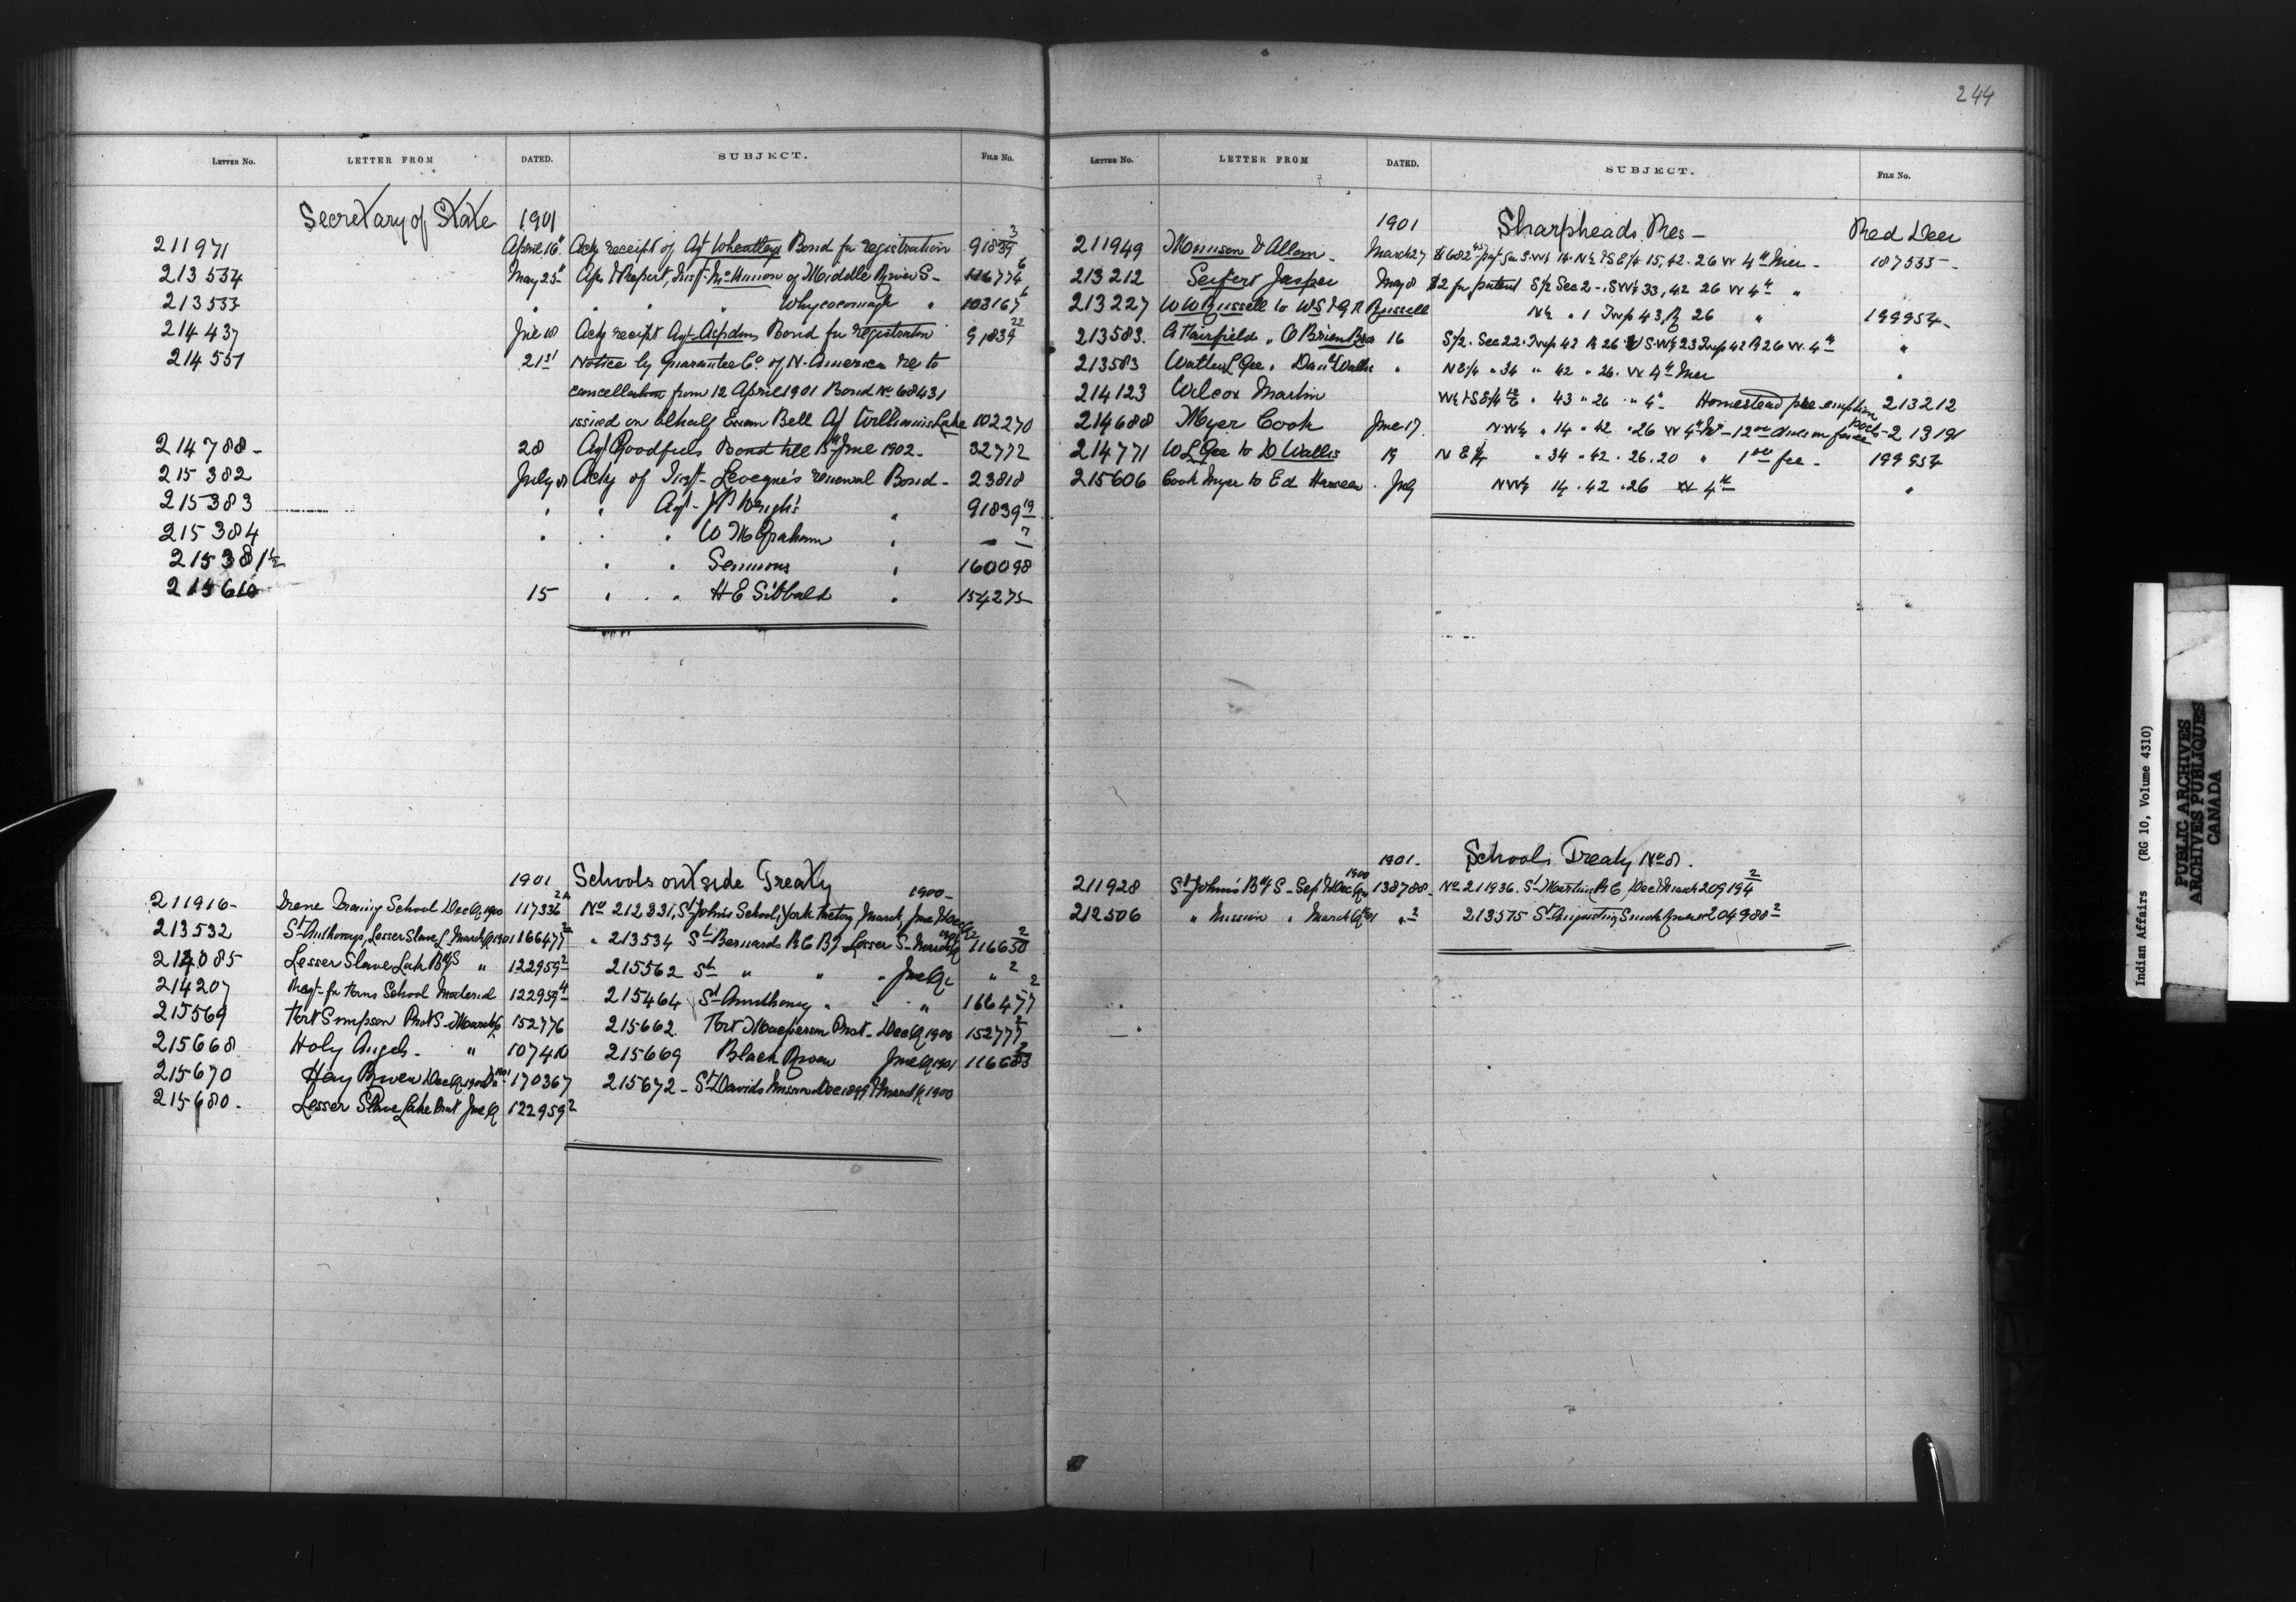 244
LETTER NO. LETTER FROM DATED. SUBJECT. FILE NO.
Secretary of State 1901
211971 April 16" Ackg receipt of Agt Wheatleys Bond for registration 91839 3
213534 May 25" Apps & Report, Inst. of Middle River S- 116774 6
213533 " " " " Whycocomagh " 103167 6
214437 June 18 Ackg receipt Agt Aspdins Bond for registration 91839 22
214551 21st Notice by Guarantee Co. of N. America re to
cancellation from 12 April 1901 Bond No 68431
issued on behalf Ewan Bell Agt Williams Lake 102270
214788- 28 Agt Bond till 15th June 1902- 32772
215382 July 8 Ackg of Inst- Leveque's renewal Bond- 23818
215383 " " Agt- J P Wright's " 91839 19
215384 " " " W M Graham " - 7
215381½ " " Semmons " 160098
215610 15 " " " H E Sibbald " 154275
1901 Schools outside Treaty
211916- Irene Training School Dec Q 1900 117336 2A No 212331, St John's School, York Factory March, June & Dec Q 1900-
213532 St Anthonys, Lesser Slave L March Q 1901 166477 2 " 213534 St Bernards R C B S Lesser S- March Q 116650 2
214085 Lesser Slave Lake Bdg S " 122959 2 215562 St " " " June Q " 2
214207 Reqt- for Forms School Material 122959 4 215464 St Anthony " " " 166477 2
215569 Fort Simpson Prot S- March Q 152776 215662 Fort Macpherson Prot- Dec Q 1900 152777 2
215668 Holy Angels- " 107410 215669 Black River June Q 1901 116683 2
215670 Hay River Dec Q 1900 170367 215672- St Davids Mission Dec 1899 & March Q 1900
215680- Lesser Slave Lake Prot June Q 122959 2
LETTER NO. LETTER FROM DATED. SUBJECT. FILE NO.
1901 Sharpheads Res- Red Deer
211949 Munson & Allan- March 27 $682 S.W¼ 14. N½ & S E/4 15, 42. 26 W 4th Mer- 187535-
213212 Seifert Jasper May 8 $2 for patent S/2 Sec 2-. SW¼ 33, 42 26 W 4th "
213227 W W Russell to W S & G R Russell N½ " 1 Twp 43, R 26 " 199954-
213583. A Fairfield " O Brien Bros 16 S/2. Sec 22. Twp 42 R 26 & S.W¼ 23 Twp 42 R 26 W. 4th "
213583 Walter L Gee " Danl Wallis " N E/4 " 34 " 42 " 26. W 4th Mer "
214123 Wilcox Martin " 43 " 26 " 4th Homestead pre emption 213212
214688 Meyer Cook June 17. N W¼ " 14 " 42 " 26 W 4th 213191
214771 W L Gee to D Wallis 19 N E ¼ " 34 " 42 " 26. 20 " 1 00 fee- 199954
215606 Cook Meyer to Ed July N W¼ 14. 42. 26 W 4th "
1901- Schools Treaty No 8.
211928 St John's Bdg S- Sept & Dec Q 1900 138788- No 211936. St Martins R C, Dec & March 209194 2
212506 " Mission " March Q 1901 " 2 213575 St Augustine, Smoky River 204988 2
Indian Affairs (RG 10, Volume 4310)
PUBLIC ARCHIVES
ARCHIVES PUBLIQUES
CANADA